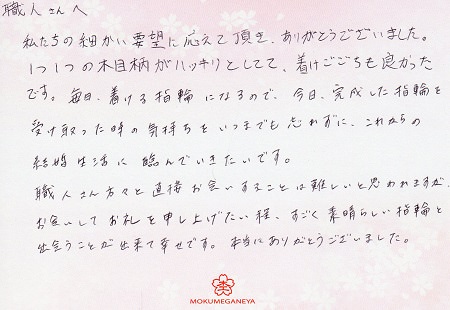 職人さんへ
私たちの細かい要望に応えて頂き、ありがとうございました。
1つ1つの木目柄がハッキリとしてて、着けごごちも良かった
です。毎日、着ける指輪になるので、今日、完成した指輪を
受け取った時の気持ちをいつまでも忘れずに、これからの
結婚生活に臨んでいきたいです。
職人さん方々と直接お会いすることは難しいと思われますが、
お会いしてお礼を申し上げたい程、すごく素晴らしい指輪と
出会うことが出来て幸せです。本当にありがとうございました。
MOKUMEGANEYA